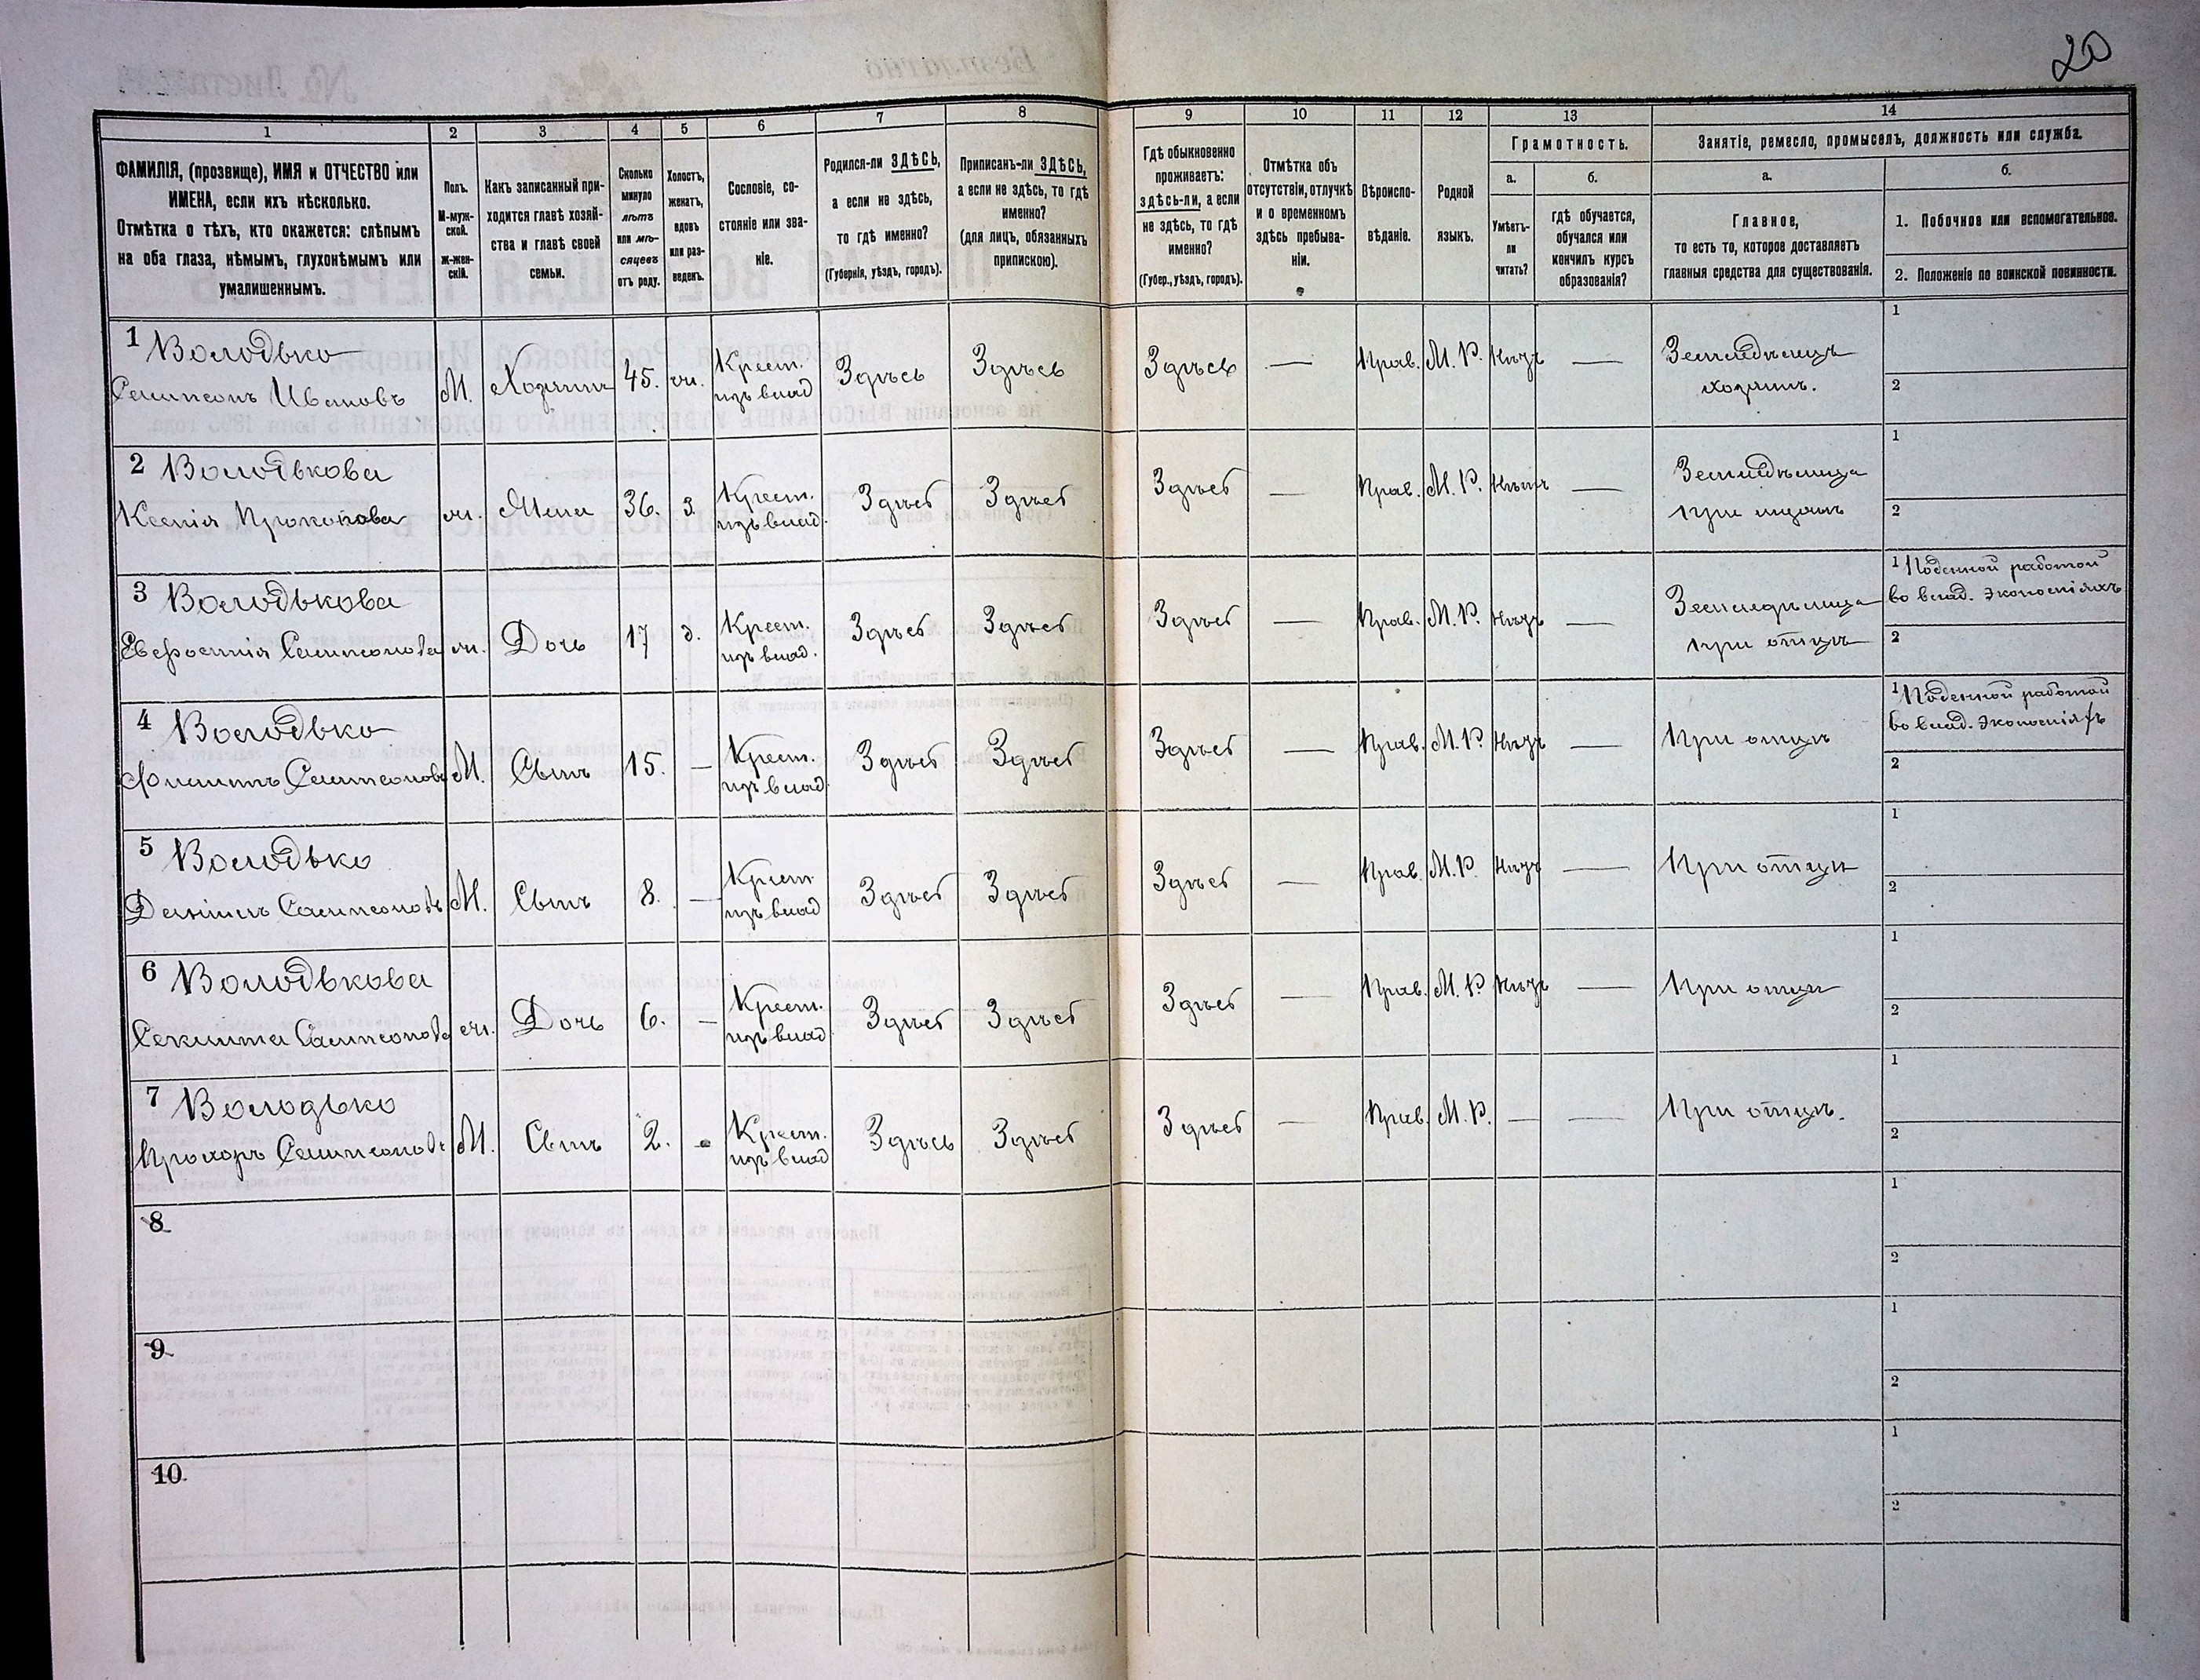 20
1 2 3 4 5 6 7 8 9 10 11 12 13 14
ФАМИЛІЯ, (прозвище), ИМЯ и ОТЧЕСТВО или
ИМЕНА, если ихъ нѣсколько.
Отмѣтка о тѣхъ, кто окажется: слѣпымъ
на оба глаза, нѣмымъ, глухонѣмымъ или
умалишеннымъ.
Полъ.
М-муж-
ской.
ж-жен-
скій.
Какъ записанный при-
ходится главѣ хозяй-
ства и главѣ своей
семьи.
Сколько
минуло
лѣтъ
или мѣ-
сяцевъ
отъ роду.
Холостъ,
женатъ,
вдовъ
или раз-
веденъ.
Сословіе, со-
стояніе или зва-
ніе.
Родился-ли ЗДѢСЬ,
а если не здѣсь,
то гдѣ именно?
(Губернія, уѣздъ, городъ).
Приписанъ-ли ЗДѢСЬ,
а если не здѣсь, то гдѣ
именно?
(для лицъ, обязанныхъ
припискою).
Гдѣ обыкновенно
проживаетъ:
здѣсь-ли, а если
не здѣсь, то гдѣ
именно?
(Губер., уѣздъ, городъ).
Отмѣтка объ
отсутствіи, отлучкѣ
и о временномъ
здѣсь пребыва-
ніи.
Вѣроиспо-
вѣданіе.
Родной
языкъ.
Грамотность.
а.
Умѣетъ-
ли
читать?
б.
гдѣ обучается,
обучался или
кончилъ курсъ
образованія?
Занятіе, ремесло, промыселъ, должность или служба.
а.
Главное,
то есть то, которое доставляетъ
главныя средства для существованія.
б.
1. Побочное или вспомогательное.
2. Положеніе по воинской повинности.
1 Володько
Сампсонъ Ивановъ
М. Хозяинъ 45. ж. Крест.
изъ влад Здѣсь Здѣсь Здѣсь — Прав. М. Р. Нѣтъ — Земледѣлецъ
хозяинъ.
1
2
2 Володькова
Ксенія Прокопова
ж. Жена 36. з. Крест.
изъ влад. Здѣсь Здѣсь Здѣсь — Прав. М. Р. Нѣтъ — Земледѣлица
при мужѣ
1
2
3 Володькова
Евфросинія Сампсонова
ж. Дочь 17 д. Крест.
изъ влад. Здѣсь Здѣсь Здѣсь — Прав. М. Р. Нѣтъ — Земледѣлица
при отцѣ
1 Поденной работой
во влад. экономіяхъ
2
4 Володько
Филиппъ Сампсоновъ
М. Сынъ 15. — Крест.
изъ влад. Здѣсь Здѣсь Здѣсь — Прав. М. Р. Нѣтъ — При отцѣ
1 Поденной работой
во влад. экономіяхъ
2
5 Володько
Сампсоновъ
М. Сынъ 8. — Крест
изъ влад Здѣсь Здѣсь Здѣсь — Прав. М. Р. Нѣтъ — При отцѣ
1
2
6 Володькова
Секлита Сампсонова
ж. Дочь 6. — Крест.
изъ влад Здѣсь Здѣсь Здѣсь — Прав. М. Р. Нѣтъ — При отцѣ
1
2
7 Володько
Прохоръ Сампсоновъ
М. Сынъ 2. - Крест.
изъ влад Здѣсь Здѣсь Здѣсь — Прав. М. Р. — — При отцѣ.
1
2
8
1
2
9
1
2
10
1
2